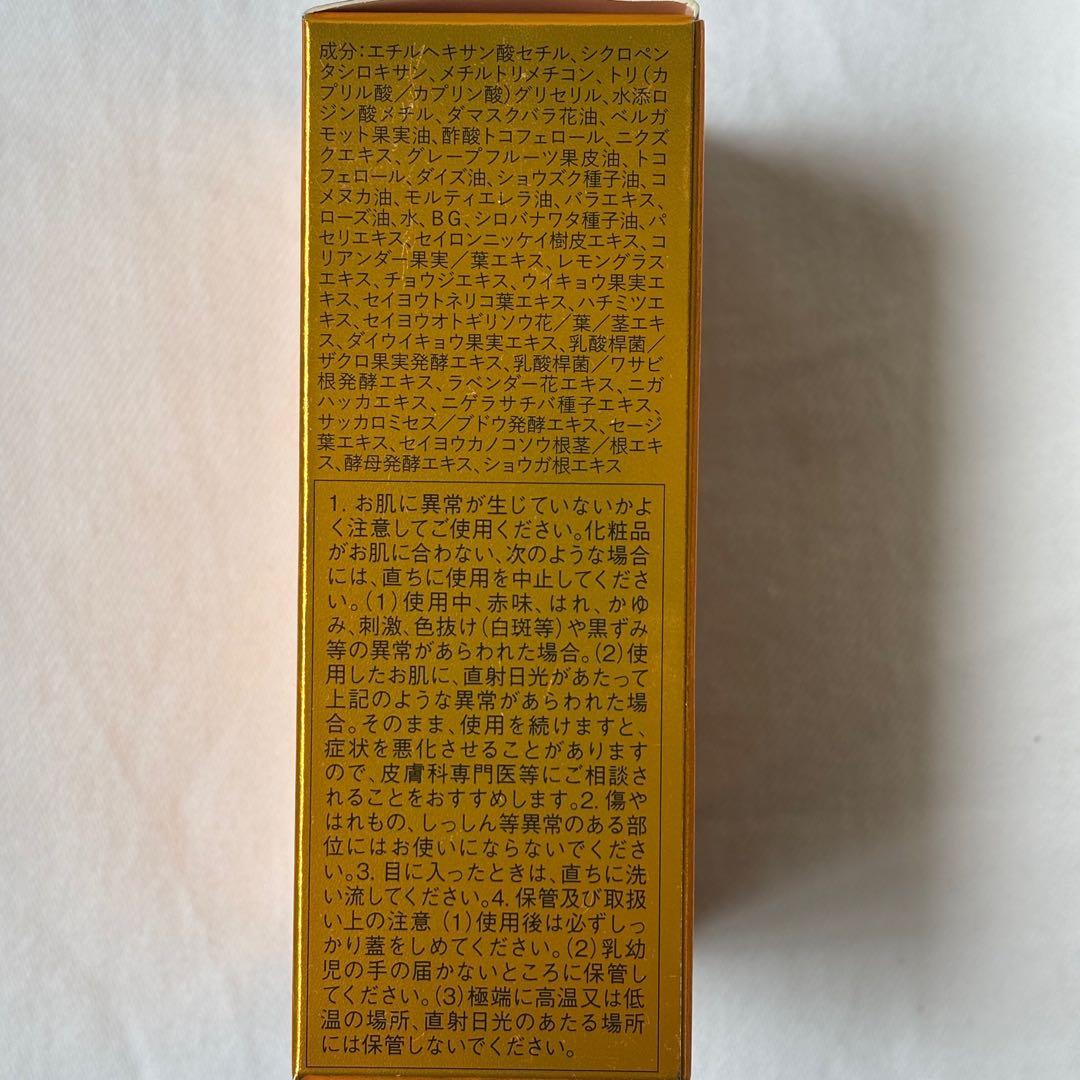 成分:エチルヘキサン酸セチル、シクロペン
タシロキサン、メチルトリメチコン、トリ(カ
プリル酸/カプリン酸)グリセリル、水添ロ
ジン酸メチル、ダマスクバラ花油、ベルガ
モット果実油、酢酸トコフェロール、ニクズ
クエキス、グレープフルーツ果皮油、トコ
フェロール、ダイズ油、ショウズク種子油、コ
メヌカ油、モルティエレラ油、バラエキス、
ローズ油、水、BG、シロバナワタ種子油、パ
セリエキス、セイロンニッケイ樹皮エキス、コ
リアンダー果実/葉エキス、レモングラス
エキス、チョウジエキス、ウイキョウ果実エ
キス、セイヨウトネリコ葉エキス、ハチミツエ
キス、セイヨウオトギリソウ花/葉/茎エキ
ス、ダイウイキョウ果実エキス、乳酸桿菌/
ザクロ果実発酵エキス、乳酸桿菌/ワサビ
根発酵エキス、ラベンダー花エキス、ニガ
ハッカエキス、ニゲラサチバ種子エキス、
サッカロミセス/ブドウ発酵エキス、セージ
葉エキス、セイヨウカノコソウ根茎/根エキ
ス、酵母発酵エキス、ショウガ根エキス
1. お肌に異常が生じていないかよ
く注意してご使用ください。化粧品
がお肌に合わない、次のような場合
には、直ちに使用を中止してくださ
い。(1)使用中、赤味、はれ、かゆ
み、刺激、色抜け(白斑等)や黒ずみ
等の異常があらわれた場合。(2)使
用したお肌に、直射日光があたって
上記のような異常があらわれた場
合。そのまま、使用を続けますと、
症状を悪化させることがあります
ので、皮膚科専門医等にご相談さ
れることをおすすめします。2. 傷や
はれもの、しっしん等異常のある部
位にはお使いにならないでくださ
い。3. 目に入ったときは、直ちに洗
い流してください。4. 保管及び取扱
い上の注意 (1)使用後は必ずしっ
かり蓋をしめてください。(2)乳幼
児の手の届かないところに保管し
てください。(3)極端に高温又は低
温の場所、直射日光のあたる場所
には保管しないでください。